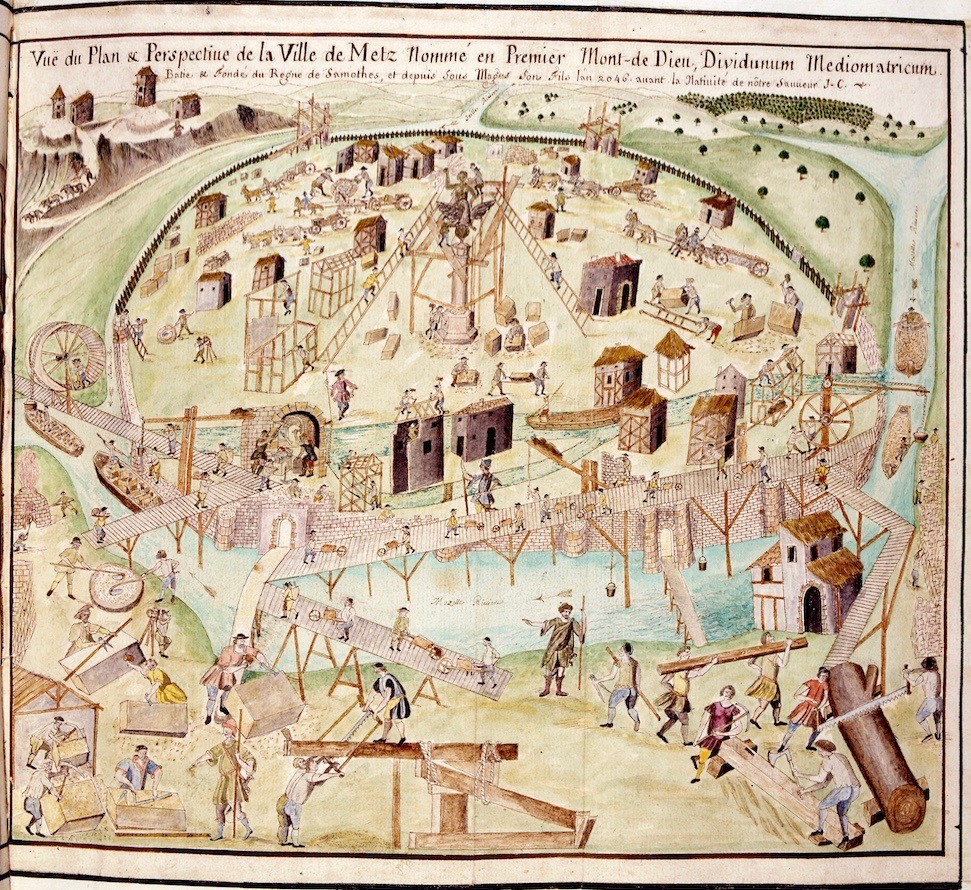 Vuë du Plan & Perspective de la Ville de Metz Nommé en Premier Mont-de Dieu, Dividunum Mediomatricum.
Batie & Fondé du Regne de Samothes, et depuis Sous Magus Son Fils l'an 2046. avant la Nativité de nôtre Sauveur J-C.
Moselle Riviere